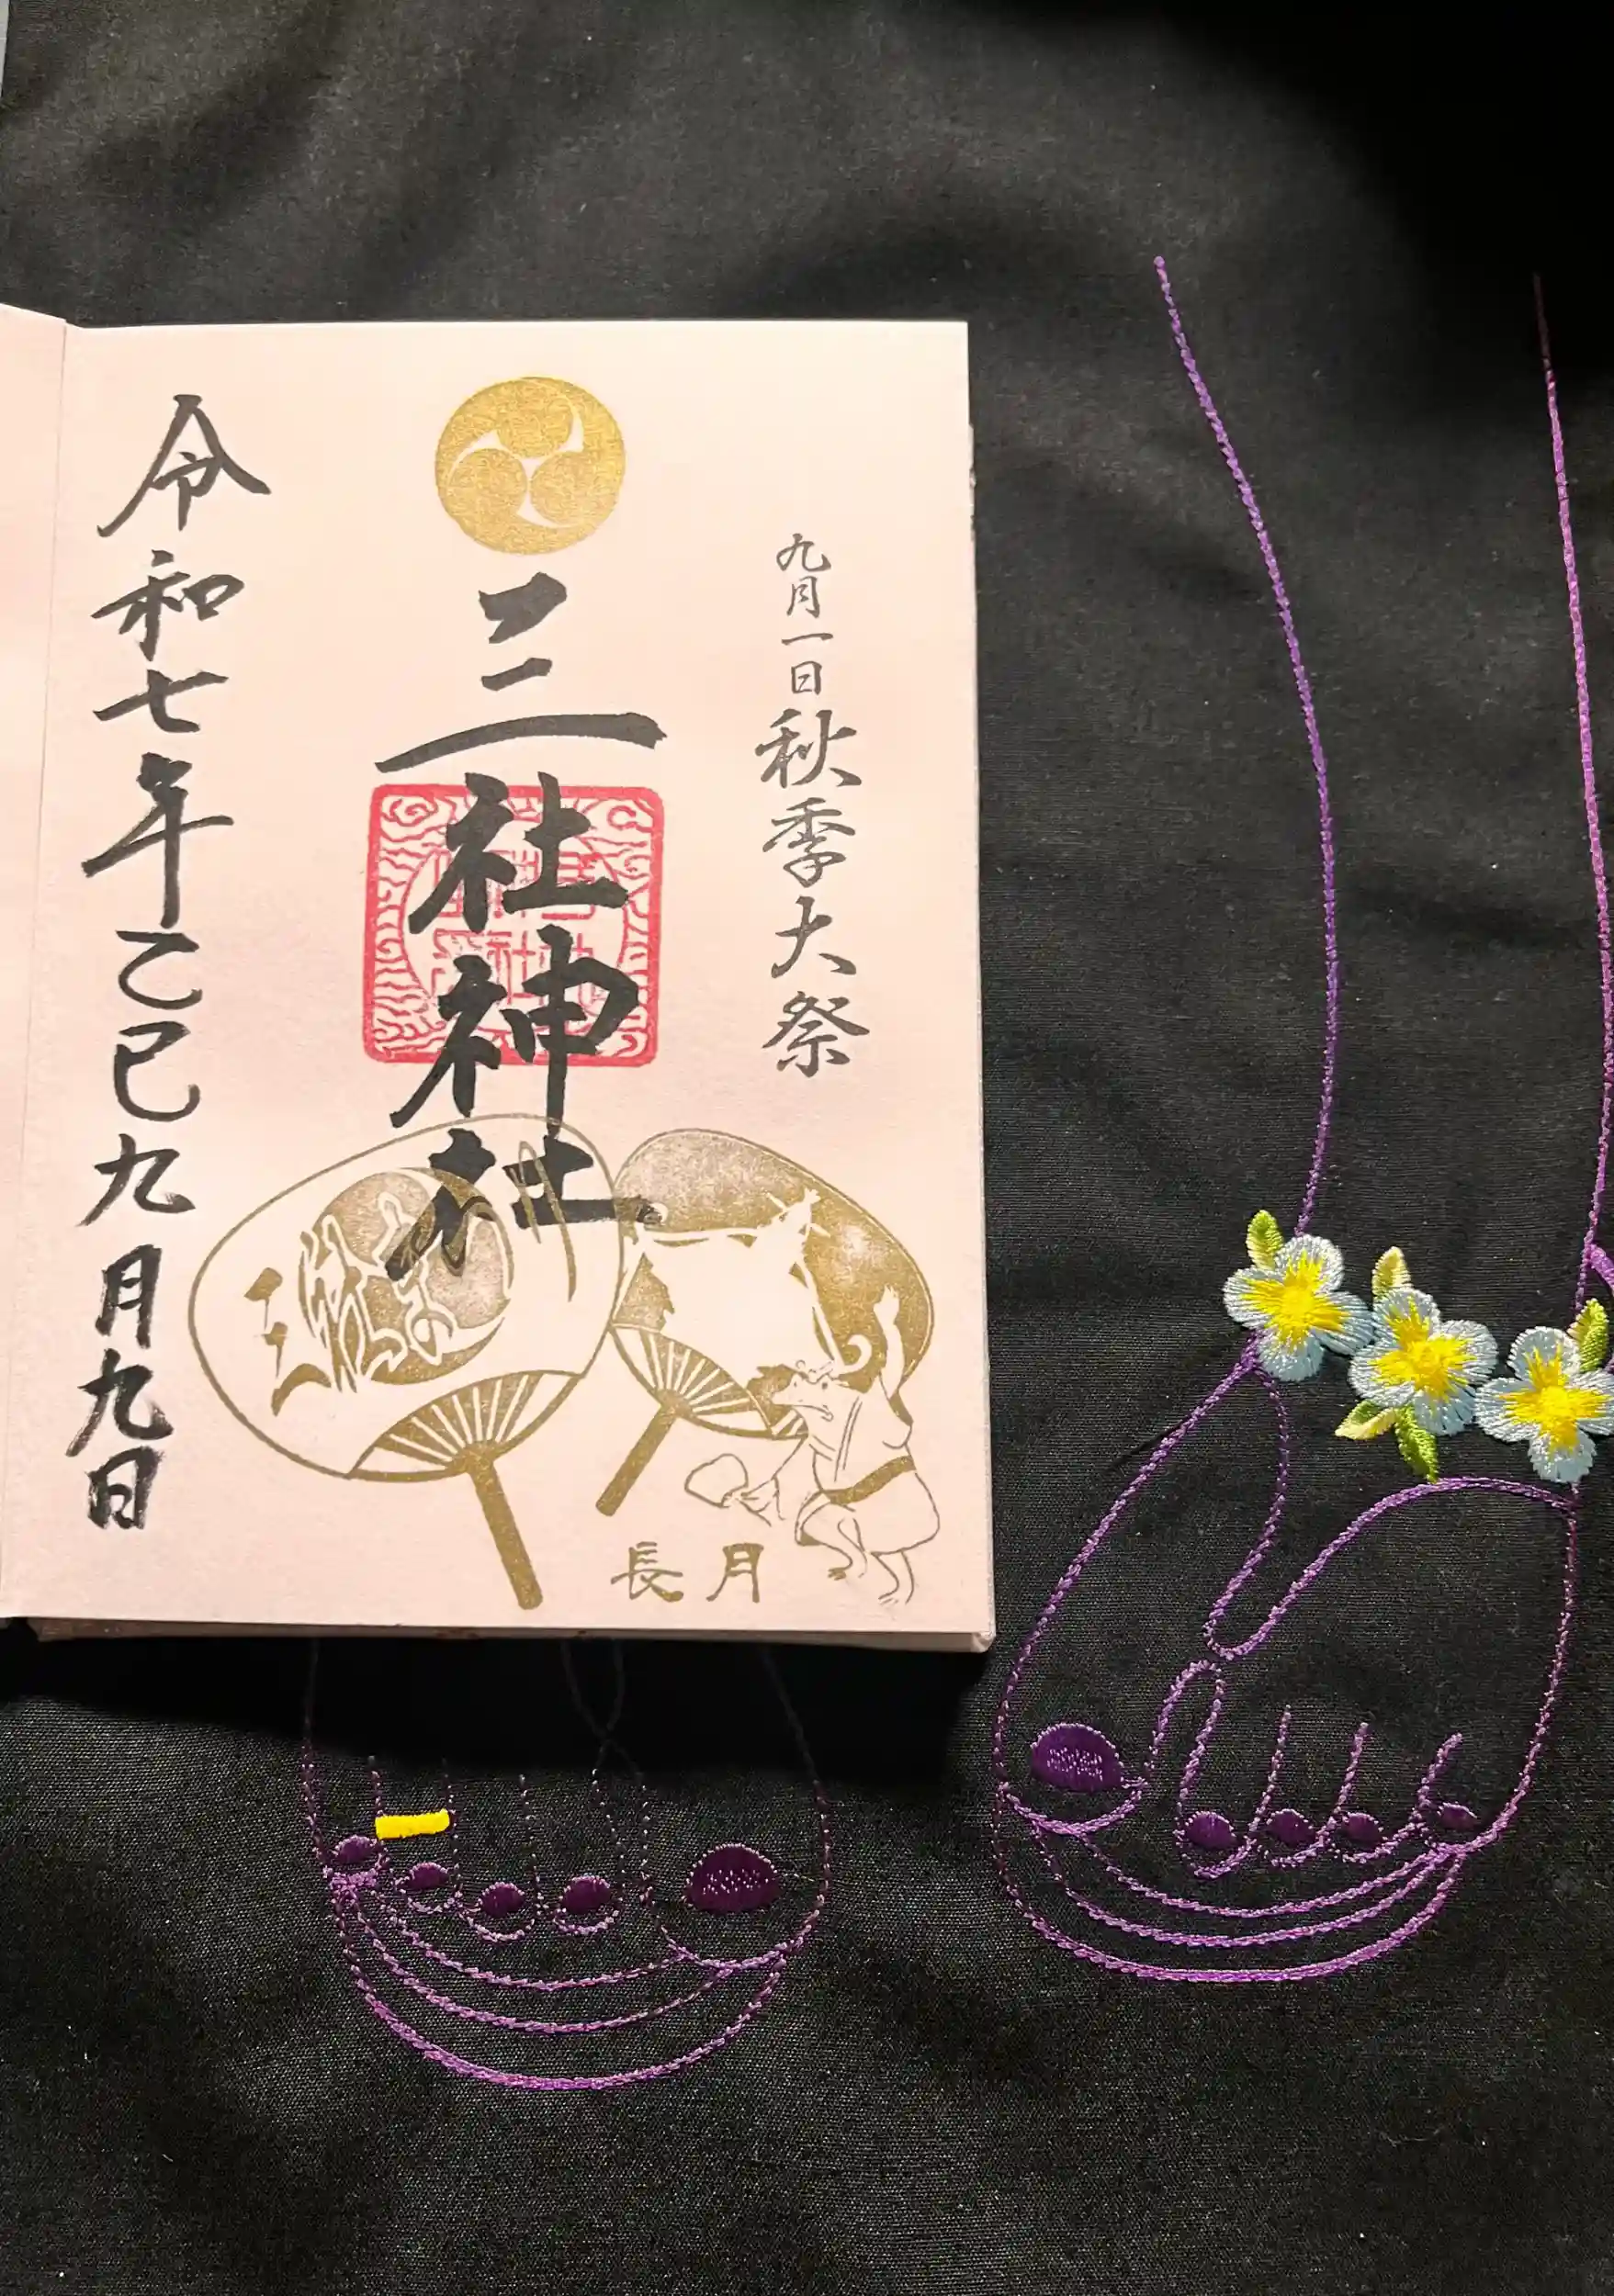 九月一日秋季大祭
三社神社
令和七年乙巳九月九日
長月